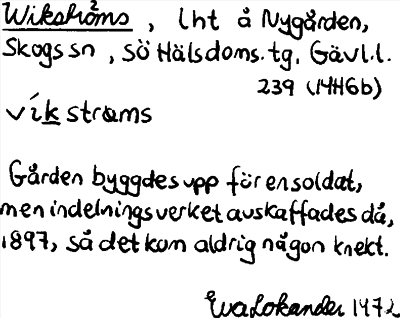 Wikströms, lht å Nygården,
Skogs sn, sö Hälsdoms.tg, Gävl.l.
239 (14H6b)
víkstrøms
Gården byggdes upp för en soldat,
men indelningsverket avskaffades då,
1897, så det kom aldrig någon knekt.
Eva Lokander 1972